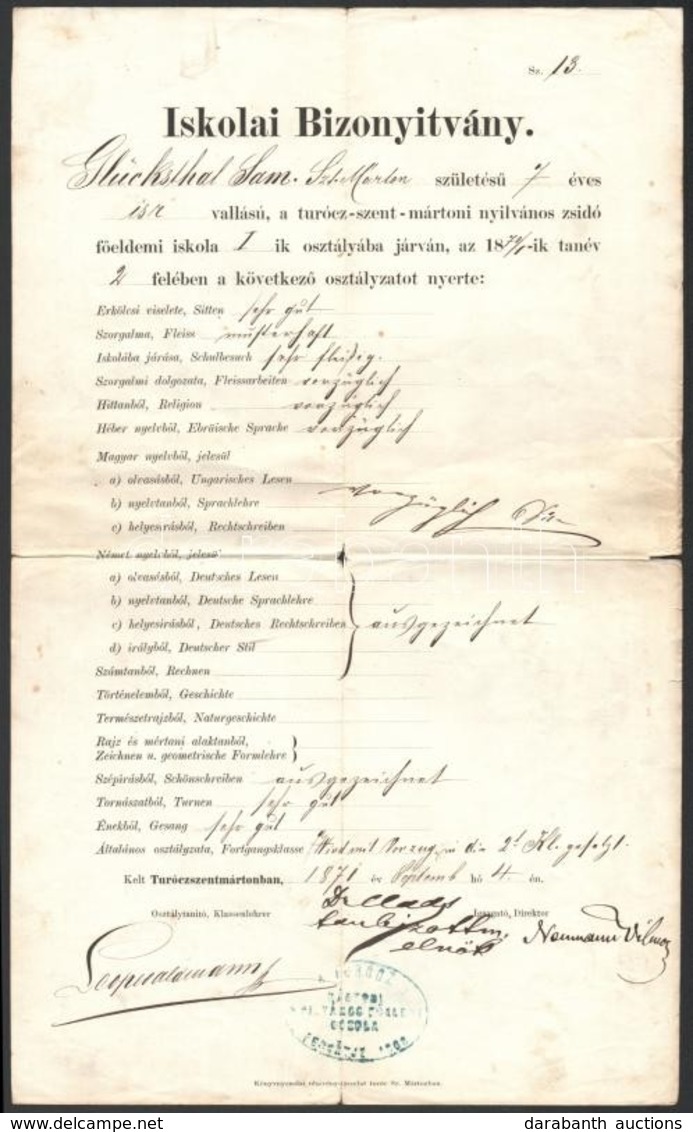 Sz. 13.
Iskolai Bizonyitvány.
Glücksthal Sam. Szt. Marton születésű 7 éves
isr vallású, a turócz-szent-mártoni nyilvános zsidó
főeldemi iskola I ik osztályába járván, az 1870/1-ik tanév
2 felében a következő osztályzatot nyerte:
Erkölcsi viselete, Sitten sehr gut
Szorgalma, Fleiss musterhaft
Iskolába járása, Schulbesuch sehr fleißig.
Szorgalmi dolgozata, Fleissarbeiten vorzüglich
Hittanból, Religion vorzüglich
Héber nyelvből, Ebräische Sprache vorzüglich
Magyar nyelvből, jelesül
a) olvasásból, Ungarisches Lesen
b) nyelvtanból, Sprachlehre vorzüglich
c) helyesirásból, Rechtschreiben
Német nyelvből, jelesül
a) olvasásból, Deutsches Lesen
b) nyelvtanból, Deutsche Sprachlehre
c) helyesirásból, Deutsches Rechtschreiben ausgezeichnet
d) irályból, Deutscher Stil
Számtanból, Rechnen
Történelemből, Geschichte
Természetrajzból, Naturgeschichte
Rajz és mértani alaktanból,
Zeichnen u. geometrische Formlehre
Szépirásból, Schönschreiben ausgezeichnet
Tornászatból, Turnen sehr gut
Énekből, Gesang sehr gut
Általános osztályzata, Fortgangsklasse Wird mit Vorzug in die 2t Kl. gesetzt.
Kelt Turóczszentmártonban, 1871 év Septemb hó 4. én.
Osztálytanító, Klassenlehrer
Igazgató, Direktor
elnök
Neumann Vilmos
Könyvnyomdai részvénytársulat Turócz Sz. Mártonban.
darabanth auctions